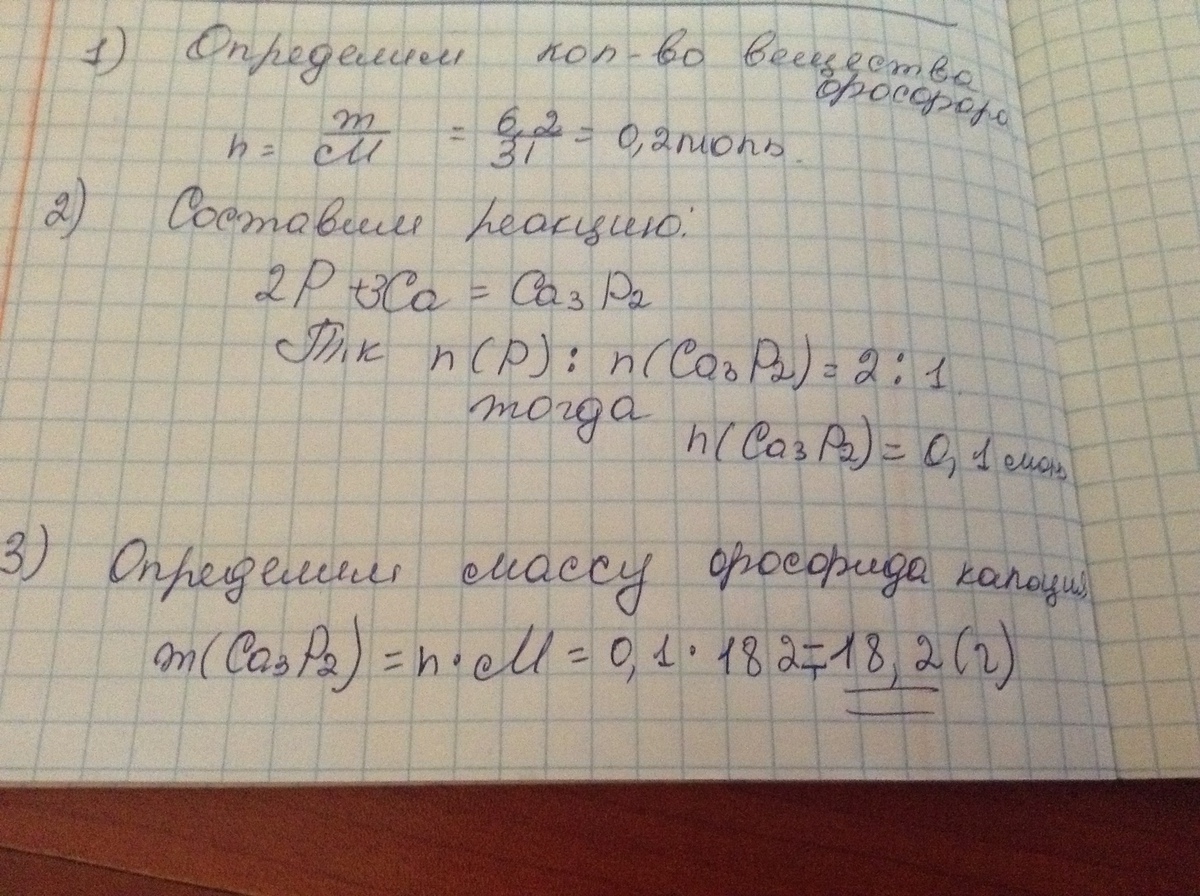 1) Определим кол-во вещества
фосфора
n = m/M = 6,2/31 = 0,2 моль.
2) Составим реакцию:
2P + 3Ca = Ca₃P₂
Т.к n(P) : n(Ca₃P₂) = 2 : 1
тогда
n(Ca₃P₂) = 0,1 моль
3) Определим массу фосфорида кальция
m(Ca₃P₂) = n · M = 0,1 · 182 = 18,2 (г)